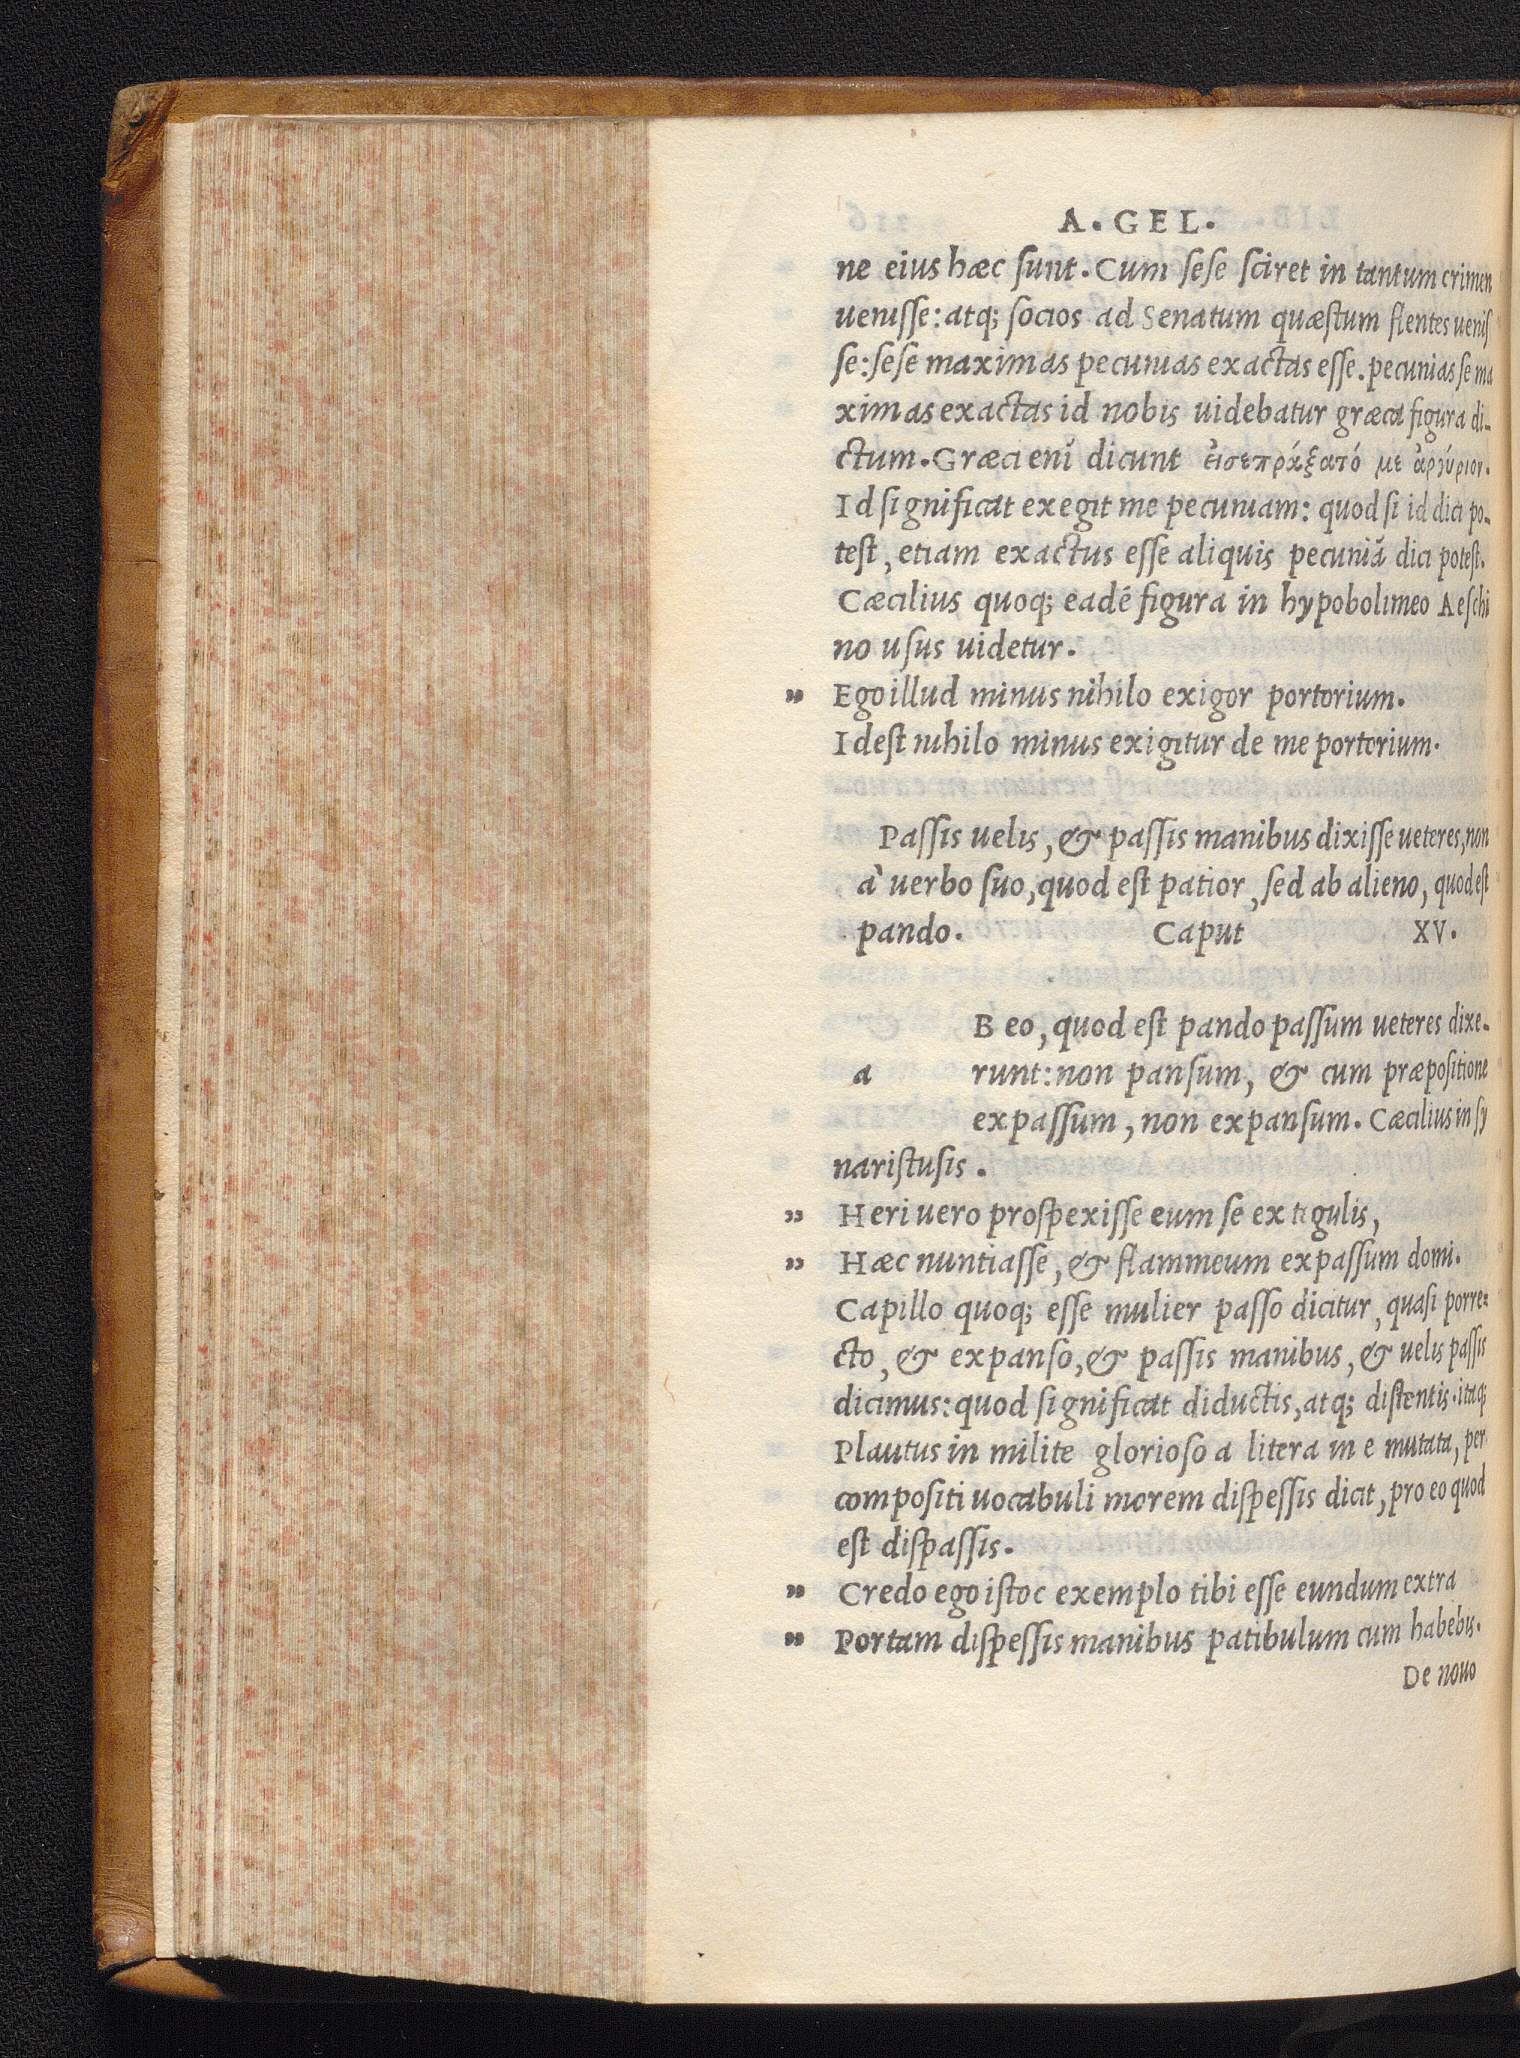 A. GEL.
ne eius hæc sunt. Cum sese sciret in tantum crimen
uenisse: atq; socios ad Senatum quæstum flentes uenis
se: sese maximas pecunias exactas esse. pecunias se ma
ximas exactas id nobis uidebatur græca figura di-
ctum. Græci enĩ dicunt εἰσεπράξατό με ἀργύριον.
Id significat exegit me pecuniam: quod si id dici po-
test, etiam exactus esse aliquis pecuniã dici potest.
Cæcilius quoq; eadẽ figura in hypobolimeo Aeschi
no usus uidetur.
„ Ego illud minus nihilo exigor portorium.
Idest nihilo minus exigitur de me portorium.
Passis uelis, & passis manibus dixisse ueteres, non
à uerbo suo, quod est patior, sed ab alieno, quod est
pando. Caput XV.
B eo, quod est pando passum ueteres dixe-
a runt: non pansum, & cum præpositione
expassum, non expansum. Cæcilius in sy
naristusis.
„ Heri uero prospexisse eum se ex tegulis,
„ Hæc nuntiasse, & flammeum expassum domi.
Capillo quoq; esse mulier passo dicitur, quasi porre-
cto, & expanso, & passis manibus, & uelis passis
dicimus: quod significat diductis, atq; distentis. itaq;
Plautus in milite glorioso a litera in e mutata, per
compositi uocabuli morem dispessis dicit, pro eo quod
est dispassis.
„ Credo ego istoc exemplo tibi esse eundum extra
„ Portam dispessis manibus patibulum cum habebis.
De nouo